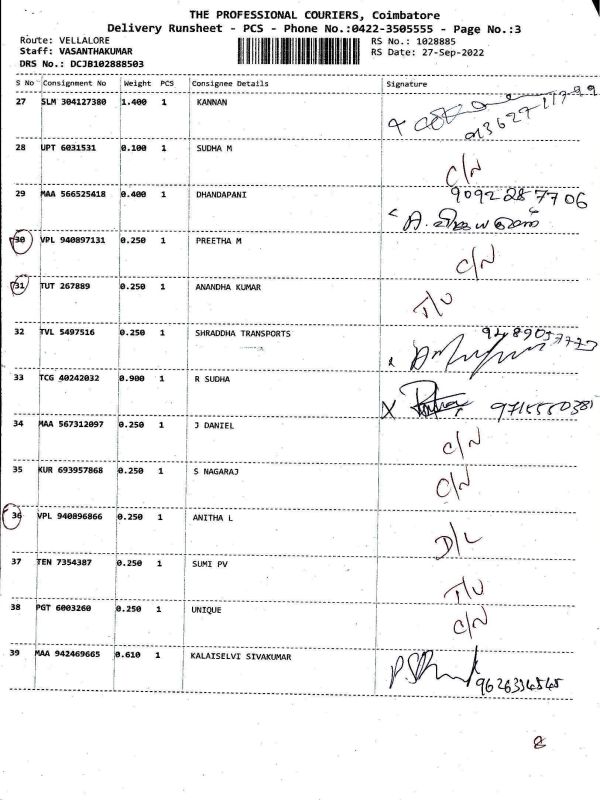 THE PROFESSIONAL COURIERS, Coimbatore
Delivery Runsheet - PCS - Phone No.:0422-3505555 - Page No.:3
Route: VELLALORE RS No.: 1028885
Staff: VASANTHAKUMAR RS Date: 27-Sep-2022
DRS No.: DCJB102888503
S No Consignment No Weight PCS Consignee Details Signature
27 SLM 304127380 1.400 1 KANNAN
28 UPT 6031531 0.100 1 SUDHA M C/N
29 MAA 566525418 0.400 1 DHANDAPANI 9092287706
A.
30 VPL 940897131 0.250 1 PREETHA M C/N
31 TUT 267889 0.250 1 ANANDHA KUMAR T/U
32 TVL 5497516 0.250 1 SHRADDHA TRANSPORTS
33 TCG 40242032 0.900 1 R SUDHA X
34 MAA 567312097 0.250 1 J DANIEL C/N
35 KUR 693957868 0.250 1 S NAGARAJ C/N
36 VPL 940896866 0.250 1 ANITHA L D/L
37 TEN 7354387 0.250 1 SUMI PV T/U
38 PGT 6003260 0.250 1 UNIQUE C/N
39 MAA 942469665 0.610 1 KALAISELVI SIVAKUMAR